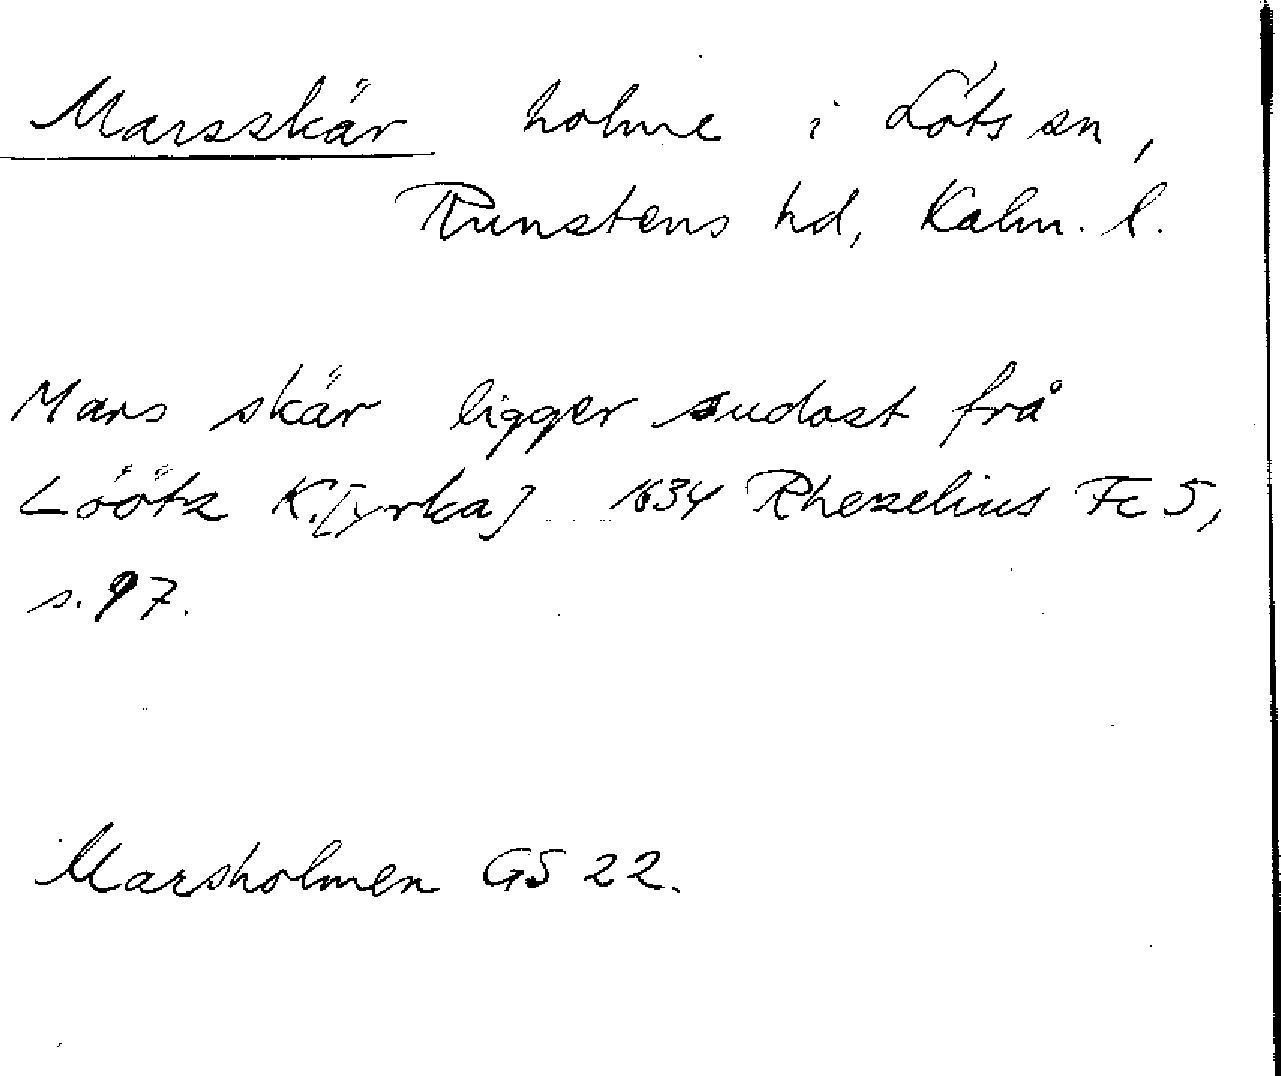 Marsskär holme i Löts sn,
Runstens hd, Kalm. l.
Mars skär ligger sudost frå
Löötz K.[yrka] 1634 Rhezelius Fc 5,
s. 97.
Marsholmen GS 22.